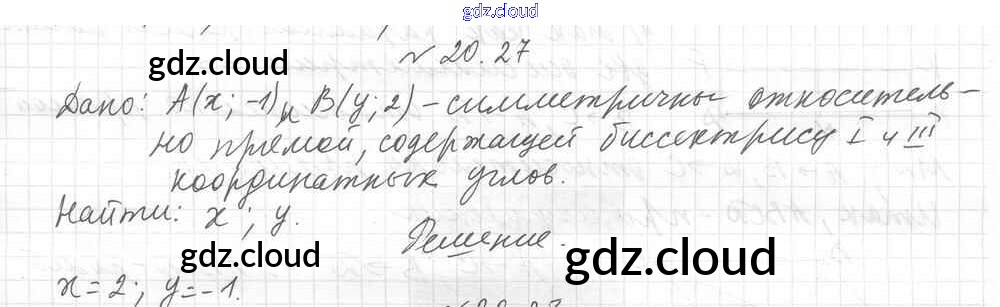 gdz.cloud
№ 20.27
gdz.cloud
Дано: A(x; -1) и B(y; 2) – симметричны относитель-
но прямой, содержащей биссектрису I и III
координатных углов.
Найти: x; y.
Решение.
gdz.cloud
gdz.cloud
x = 2; y = -1.